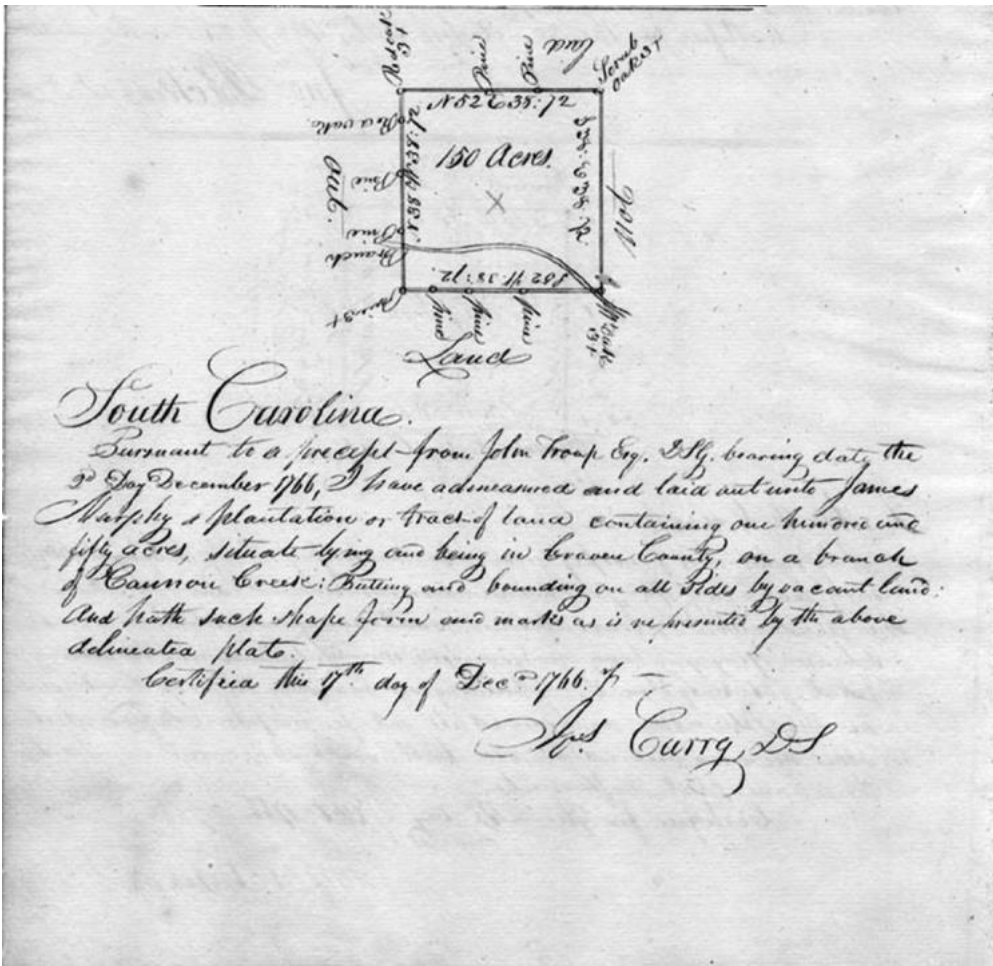 Land
Redoak 3+
Pine
Pine
Scrub oak 3+
N 52 E 38:72
Redoak
150 Acres.
Pine
N 38 W 38:72
S 38 E 38:72
Vacant
Pine
Branch
S 52 W 38:72.
Pine 3+
Pine
Pine
Pine
oak 3+
Land
South Carolina.
Pursuant to a precept from John Troup Esq. DSG. bearing date the
2d Day December 1766, I have admeasured and laid out unto James
Murphy a plantation or tract of land containing one hundred and
fifty acres, situate lying and being in Craven County, on a branch
of Cannon Creek: Butting and bounding on all Sides by vacant land:
And hath such shape form and marks as is represented by the above
delineated plat.
Certified this 17th day of Decr 1766. P
Jas Curry, DS